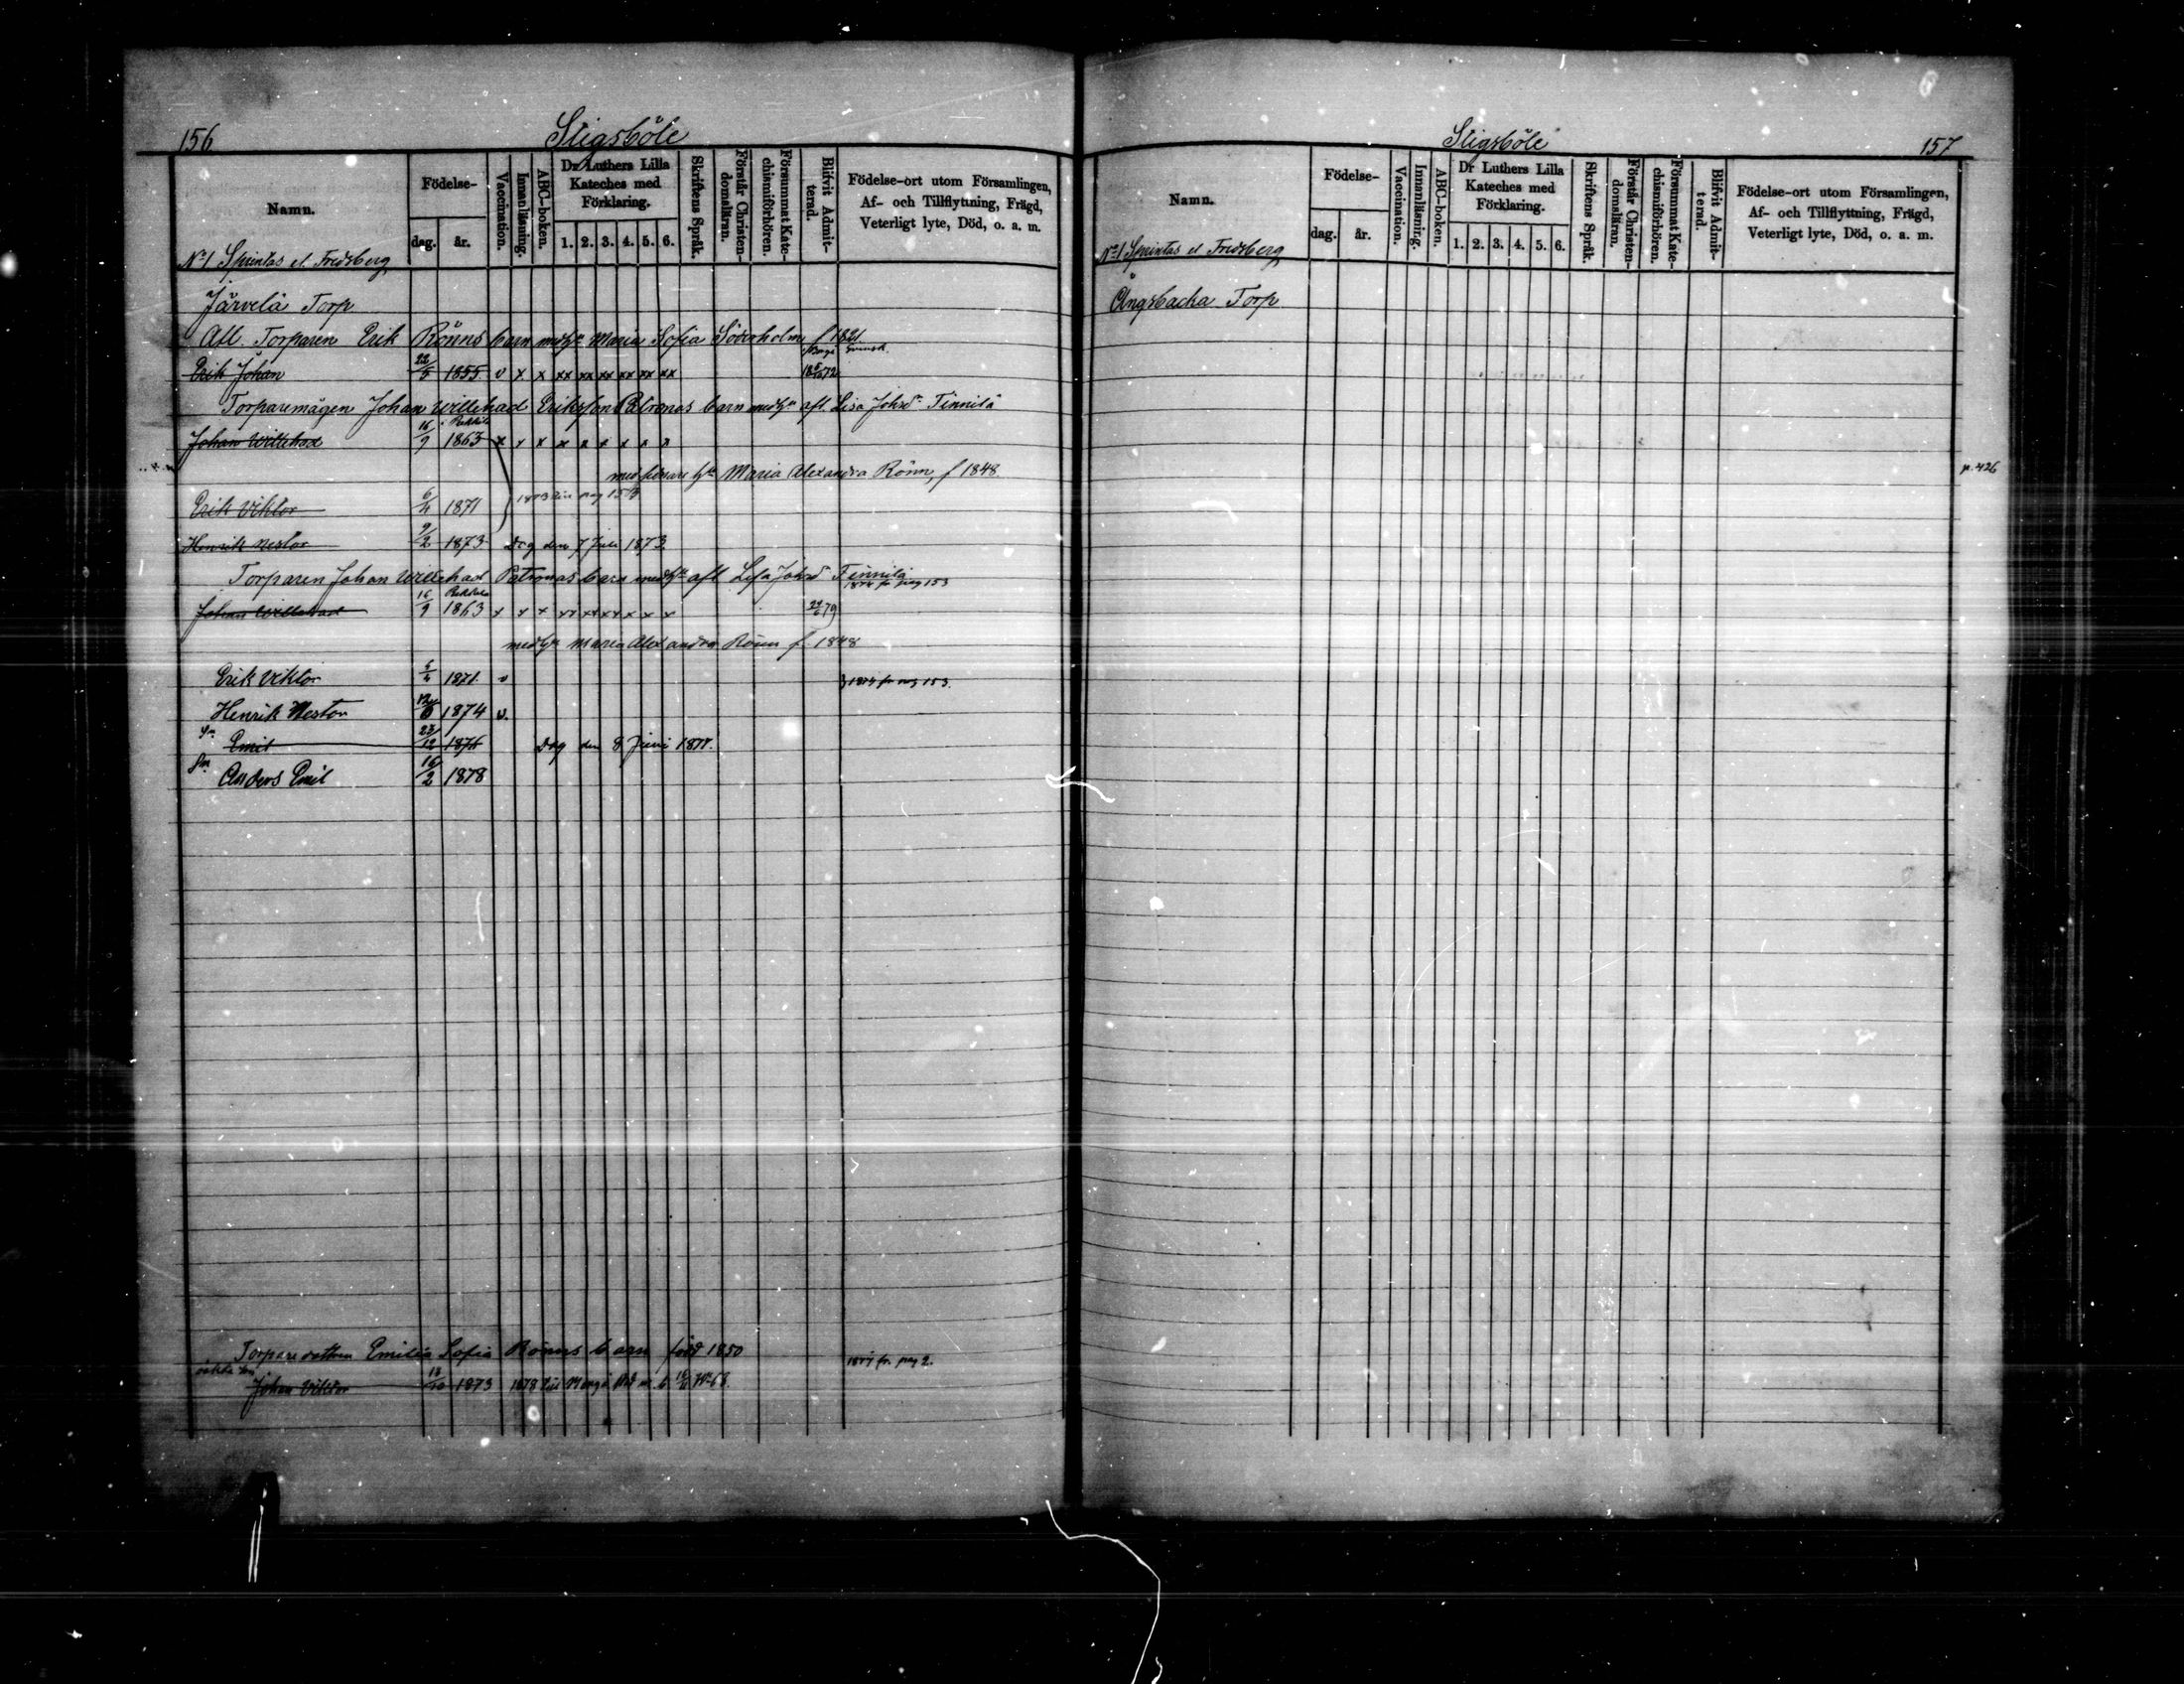 156
Stigsböle
Namn.
Födelse-
dag.
år.
Vaccination.
Innanläsning.
ABC-boken.
Dr Luthers Lilla
Kateches med
Förklaring.
1. 2. 3. 4. 5. 6.
Skriftens Språk.
Förstår Christen-
domsläran.
Försummat Kate-
chismiförhören.
Blifvit Admit-
terad.
Födelse-ort utom Församlingen,
Af- och Tillflyttning, Frägd,
Veterligt lyte, Död, o. a. m.
No 1 Sprintas et Fredsberg
Järvelä Torp
Afl. Torparen Erik Rönns barn med h. Maria Sofia Söderholm f 1821
Erik Johan 22/5 1855 v x x xx xx xx xx xx xx
Torparemågen Johan Willehad Eriksson Patronas barn med h. afl. Lisa Johsd Tinnilä
Johan Willehad 16/9 1863 x x x x x x x x x
med senare h. Maria Alexandra Rönn, f 1848.
Erik Viktor 6/4 1871
Henrik Nestor 9/2 1873 Dog den 7 Juli 1873.
Torparen Johan Willehad Patronas barn med h. afl Lisa Johsd Tinnilä
1874 fr pag 153
Johan Willehad 16/9 1863 x x x xx xx xx x x x 79
med h. Maria Alexandra Rönn f. 1848
Erik Viktor 1871. v 1874 fr pag 153.
Henrik Nestor 1874 v.
Emil 23/12 1876 Dog den 8 Juni 1877.
Anders Emil 16/2 1878
Torpare dottern Emilia Sofia Rönns barn född 1850
1877 fr. pag 2.
Johan Viktor 13/10 1873 1878 till Borgå
Stigsböle
157
Namn.
Födelse-
dag.
år.
Vaccination.
Innanläsning.
ABC-boken.
Dr Luthers Lilla
Kateches med
Förklaring.
1. 2. 3. 4. 5. 6.
Skriftens Språk.
Förstår Christen-
domsläran.
Försummat Kate-
chismiförhören.
Blifvit Admit-
terad.
Födelse-ort utom Församlingen,
Af- och Tillflyttning, Frägd,
Veterligt lyte, Död, o. a. m.
No 1 Sprintas et Fredsberg
Ångsbacka Torp
p. 426